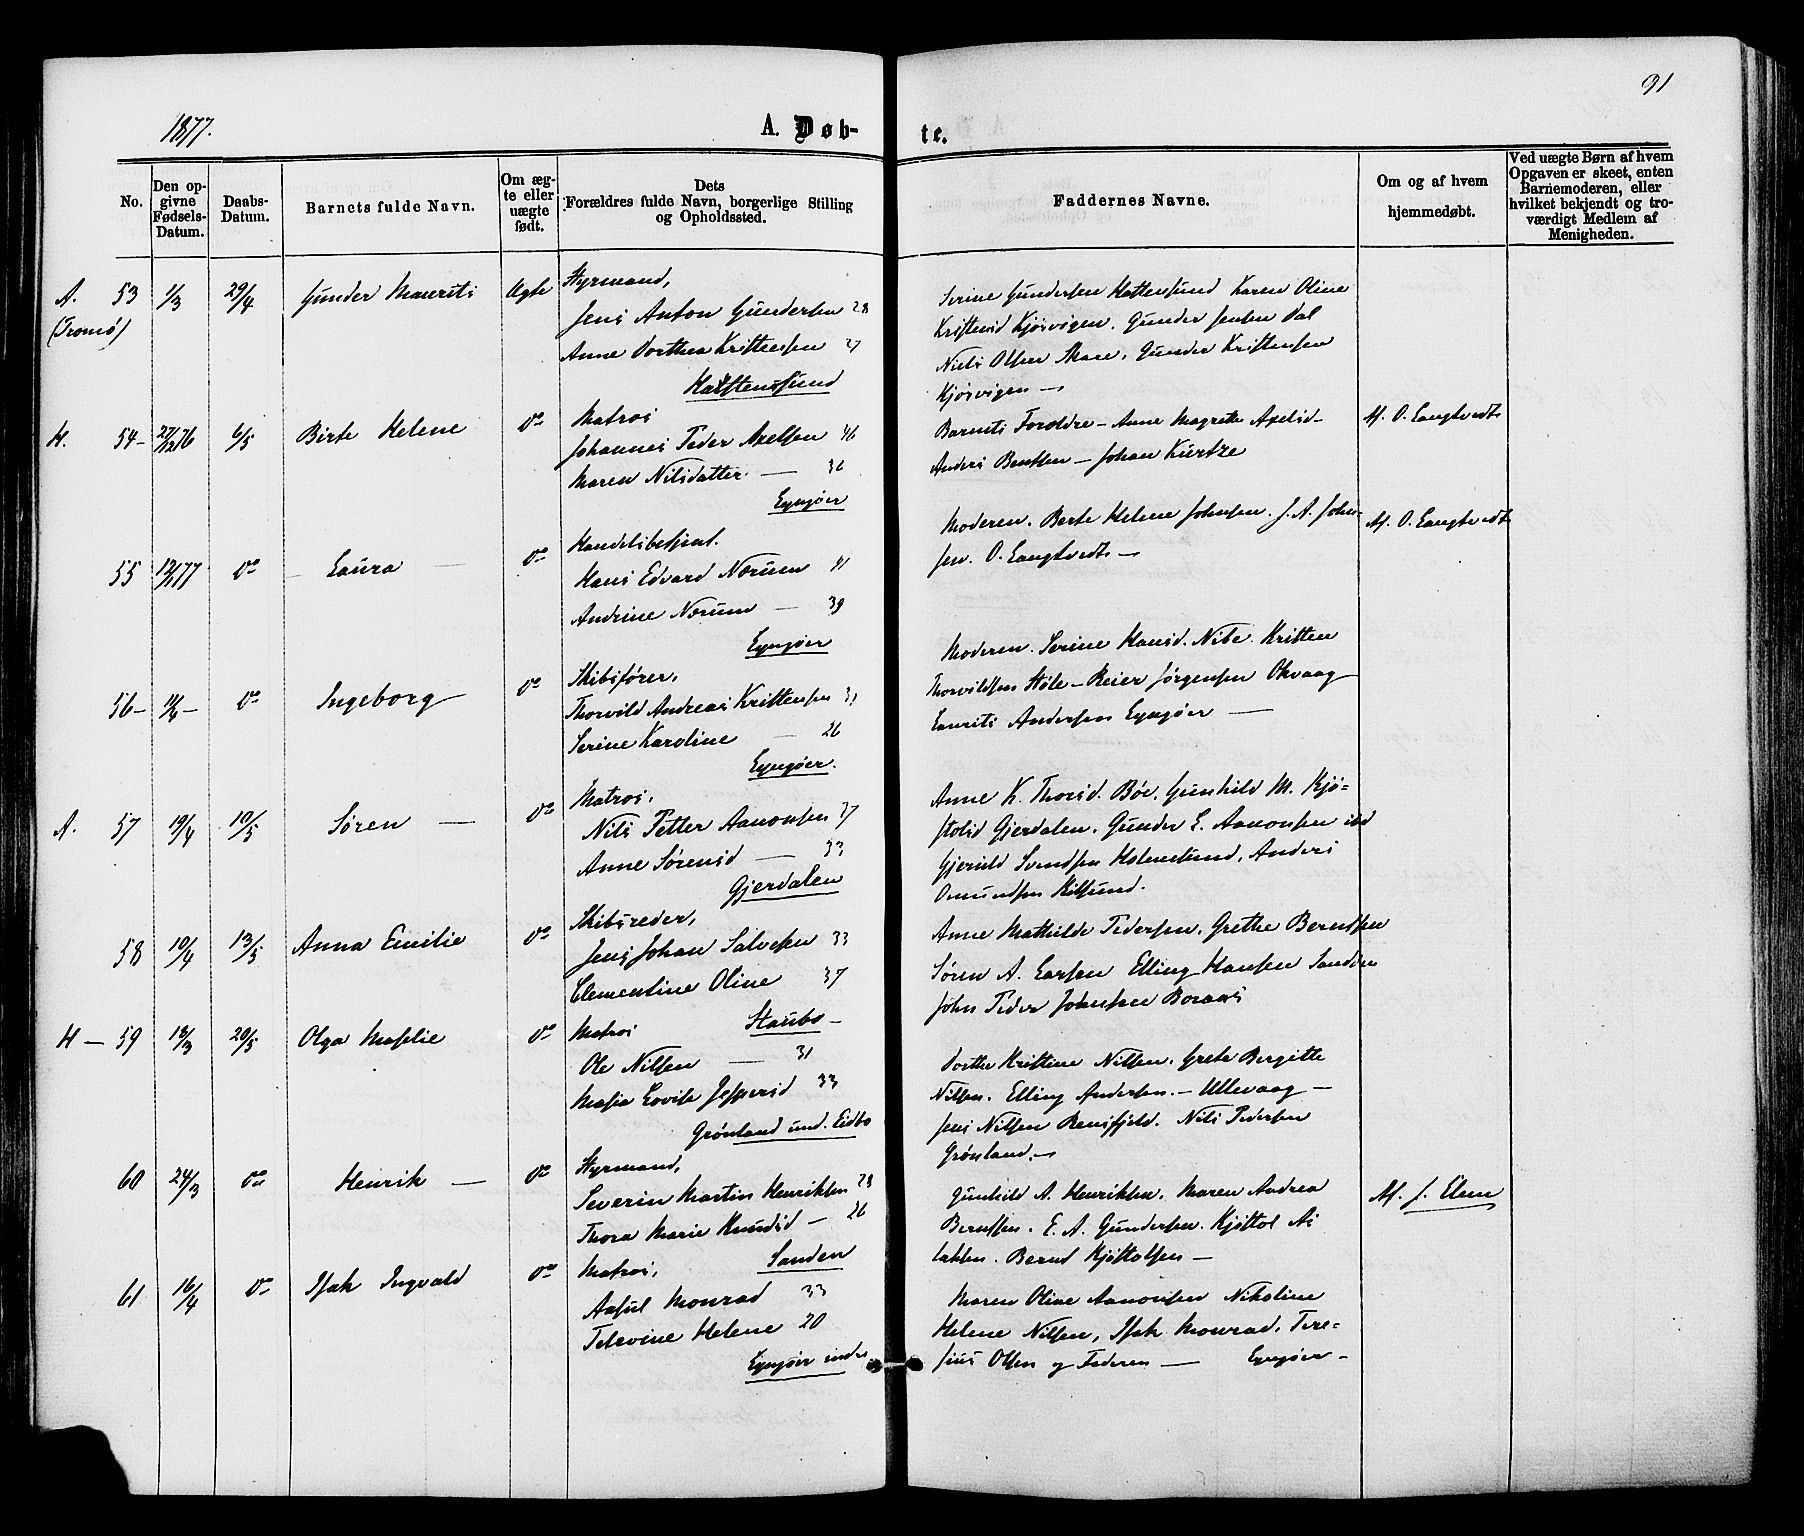 91
1877.
A. Døb-
te.
No.
Den op-
givne
Fødsels-
Datum.
Daabs-
Datum.
Barnets fulde Navn.
Om æg-
te eller
uægte
født.
Dets
Forældres fulde Navn, borgerlige Stilling
og Opholdssted.
Faddernes Navne.
Om og af hvem
hjemmedøbt.
Ved uægte Børn af hvem
Opgaven er skeet, enten
Barnemoderen, eller
hvilket bekjendt og tro-
værdigt Medlem af
Menigheden.
A. 53 1/3 29/4 Gunder Maurits Ægte Styrmand,
(Tromø)
Jens Anton Gundersen 28
Anne Dorthea Kristensen 27
Karstensund
Serine Gundersen Kattensund Karen Oline
Kristensd Kjøsvigen. Gunder Jensen Dal
Niels Olsen Skare. Gunder Kristensen
Kjøsvigen —
H. 54 – 27/12 76 6/5 Birte Helene do Matros
Johannes Peder Axelsen 46
Maren Nilsdatter — 36
Lyngøer
Barnets Forældre – Anne Magrete Axelsd –
Anders Bentsen – Johan Kurtze
Af. O. Langtvedt
55 12/1 77 do – Laura – do Handelsbetjent.
Hans Edvard Nærum 41
Andrine Nærum — 39
Lyngøer
Moderen. Berte Helene Johnsen. J. A. John-
sen. O. Langtvedt —
Af. O. Langtvedt
56 – 11/4 – do Ingeborg do Skibsfører,
Thorvild Andreas Kristensen 31
Serine Karoline — 26
Lyngøer.
Moderen. Serine Hansd. Nibe. Kristen
Thorvildsen Støle – Reier Jørgensen Okvaag
Laurits Andersen Lyngøer —
A. 57 19/4 10/5 Søren — do Matros,
Nils Petter Aanonsen 37
Anne Sørensd — 33
Gjerdalen
Anne K. Thorsd. Bøe. Gunhild M. Kjø-
stolsd Gjerdalen. Gunder E. Aanonsen ibd
Gjeruld Svendsen Holmesund. Anders
Omundsen Kilsund.
58 10/4 13/5 Anna Emilie do Skibsreder,
Jens Johan Salvesen 33
Clementine Oline 37
Staubo –
Anne Mathilde Pedersen. Grethe Berntsen
Søren A. Larsen Elling Hansen Sanden
John Peder Johnsen Boraas
H – 59 18/3 20/5 Olga Maslie do Matros
Ole Nilsen — 31
Masia Lovise Jespersd 33
Grønland und. Eidbo
Dorthe Kristine Nilsen. Grete Bergitte
Nilsen. Elling Andersen. – Ullevaag –
Jens Nilsen Rensfjeld. Nils Pedersen
Grønland. –
60 24/3 do Henrik — do Styrmand,
Severin Martin Henriksen 28
Thora Marie Knudsd – 26
Sanden
Gunhild A. Henriksen. Maren Andrea
Berntsen. E. A. Gundersen. Kjøstol As
laksen. Bernd Kjøstolsen —
Af. J. Elen
61 16/4 do Isak Ingvald do Matros,
Aasul Monrad 33
Televine Helene 20
Lyngøer indre
Maren Oline Aanonsen Nikoline
Helene Nilsen, Isak Monrad. Tere-
sius Olsen og Faderen — Lyngøer –